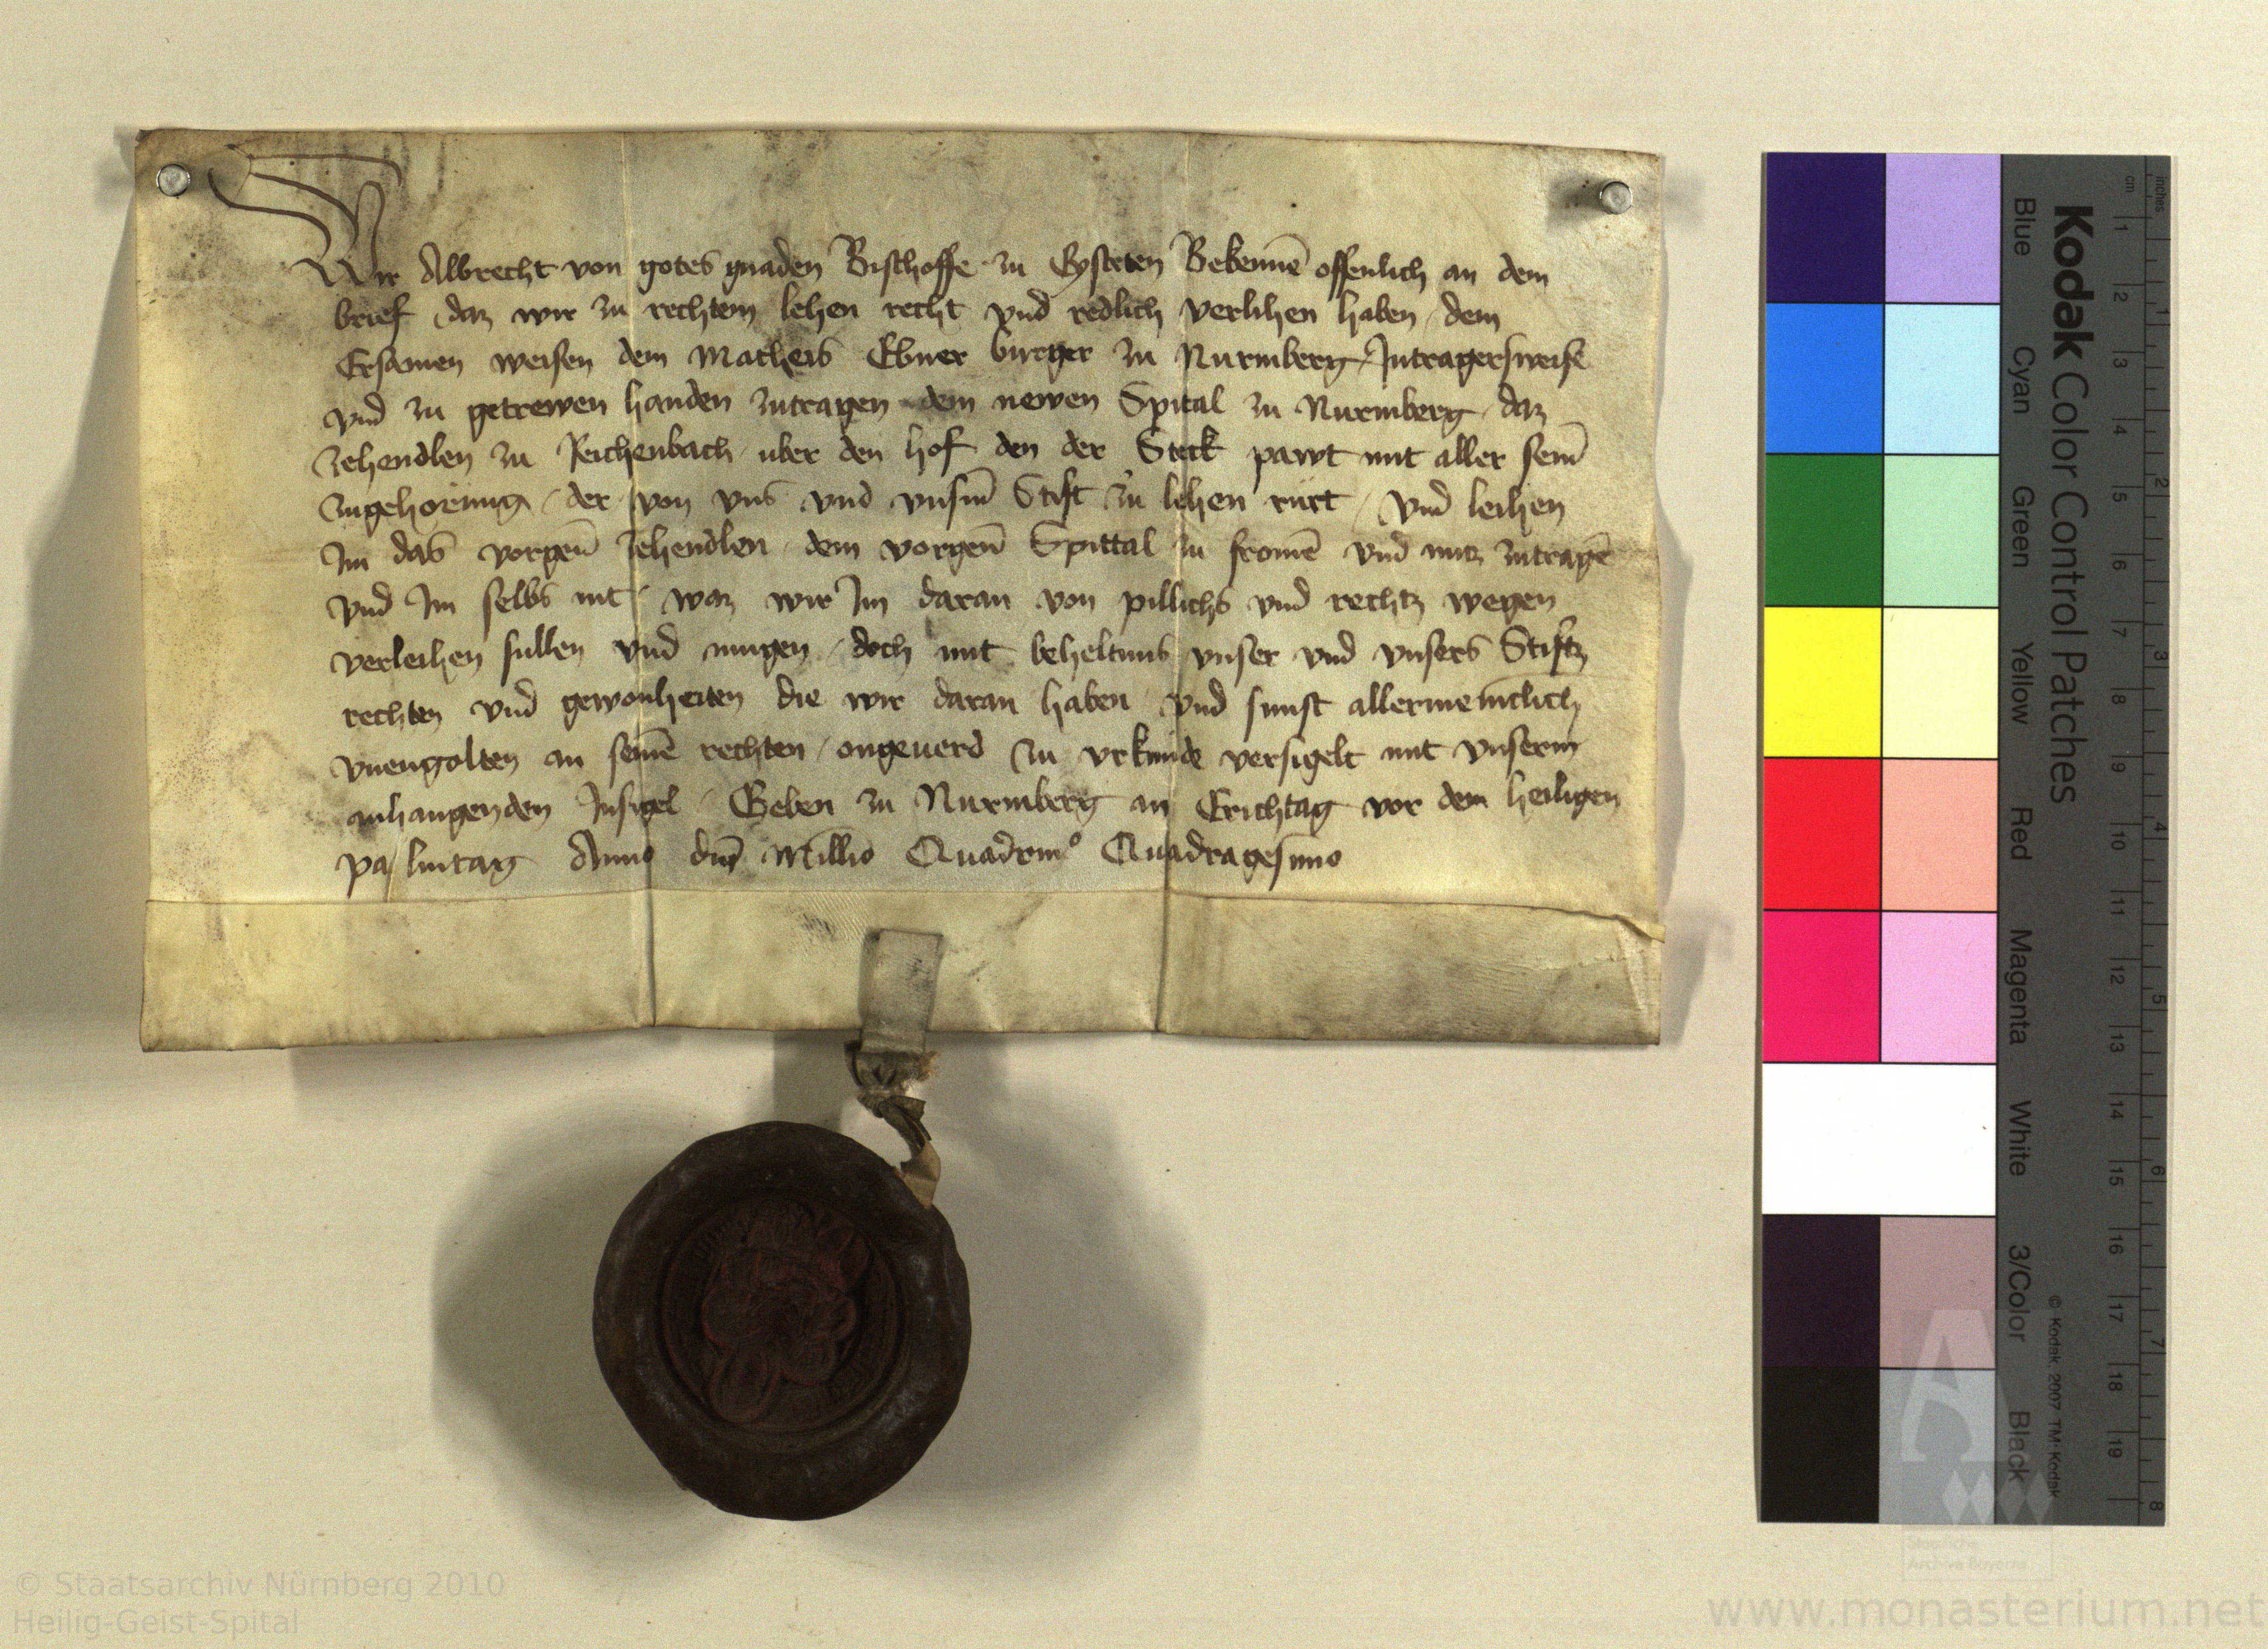 Wir Albrecht von gotes gnaden Bischoffe zu Eysteten Bekenne̅ offenlich an dem
brief daz wir zu rechtem lehen recht vnd redlich verlihen haben dem
Ersamen weisen dem Matheis Ebner burger zu Nurmberg Intragersweise
vnd zu getrewen handen zutragen dem newen Spital zu Nurmberg daz
zehendlen zu Reichenbach uber den hof den der Steck pawt mit aller sein̅
zugehorung der von vns vnd vnsm̅ Stift zu lehen rürt vnd leihen
Im das vorgen̅ zehendlen dem vorgen̅ Spittal zu frome̅ vnd nutz zutrage̅
vnd Im selbs nit waz wir Im daran von pillichs vnd rechtz wegen
verleihen sullen vnd mugen doch mit beheltnus vnser vnd vnsers Stiftz
rechten vnd gewonheiten die wir daran haben vnd sunst allermeniclich
vnengolten an seine̅ rechten ongeuerd zu vrkunde versigelt mit vnserm
anhangenden Insigel Geben zu Nurmberg an Erichtag vor dem heiligen
palmtag Anno dm̅ Mill̅io Quadrin̅º Quadragesimo
Kodak Color Control Patches
Blue Cyan Green Yellow Red Magenta White 3/Color Black
© Kodak 2007 TM: Kodak
inches 1 2 3 4 5 6 7 8
cm 1 2 3 4 5 6 7 8 9 10 11 12 13 14 15 16 17 18 19
Staatliche
Archive Bayerns
© Staatsarchiv Nürnberg 2010
Heilig-Geist-Spital
www.monasterium.net